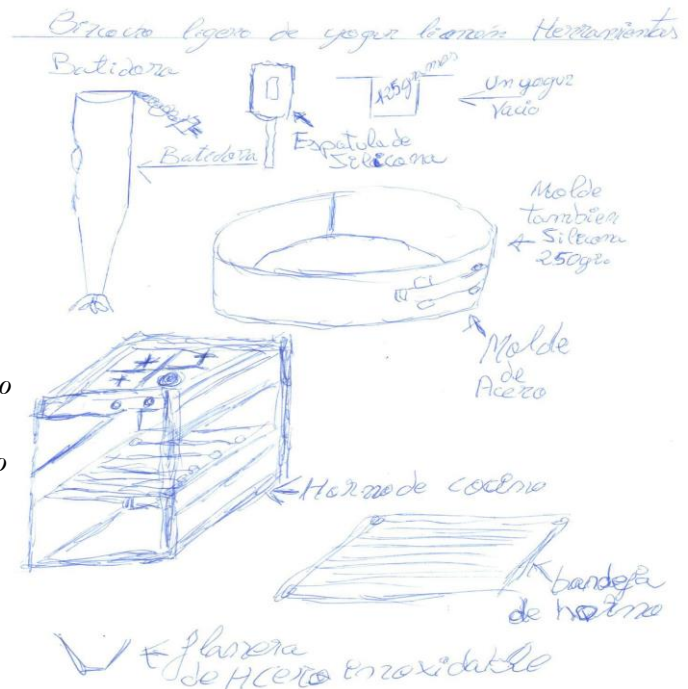 Bizcocho ligero de yogur limón Herramientas
Batidora
125gramos
Un yogur
Vacio
Espatula de
Silicona
Batidora
Molde
tambien
Silicona
250gr.
Molde
de
Acero
o
o
Horno de cocina
bandeja
de horno
flanera
de Acero inoxidable